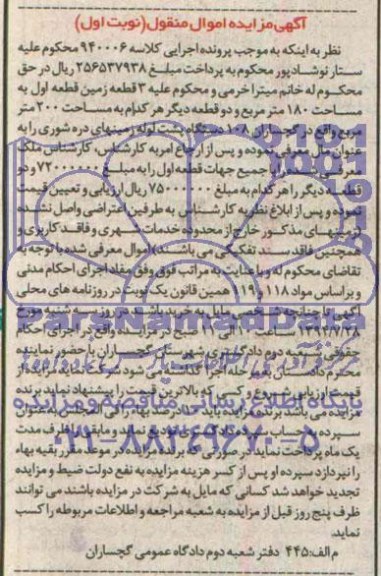 آگهی مزایده اموال منقول(نوبت اول)
نظر به اینکه به موجب پرونده اجرایی کلاسه ۹۴۰۰۰۶ محکوم علیه
ستار نوشادپور محکوم به پرداخت مبلغ ۲۵۶۵۳۷۹۳۸ ریال در حق
محکوم له خانم میترا خرمی و محکوم علیه ۳ قطعه زمین قطعه اول به
مساحت ۱۸۰ متر مربع و دو قطعه دیگر هر کدام به مساحت ۲۰۰ متر
مربع واقع در گچساران ۱۰۸ دستگاه پشت لوله زمینهای دره شوری را به
عنوان مال معرفی نموده و پس از ارجاع امر به کارشناس، کارشناس ملک
معرفی شده را با جمیع جهات قطعه اول را به مبلغ ۷۲۰۰۰۰۰۰ و دو
قطعه دیگر را هر کدام به مبلغ ۷۵۰۰۰۰۰۰ ریال ارزیابی و تعیین قیمت
نموده و پس از ابلاغ نظریه کارشناس به طرفین اعتراضی واصل نشده
(زمینهای مذکور خارج از محدوده خدمات شهری و فاقد کاربری و
همچنین فاقد سند تفکیکی می باشند) اموال معرفی شده با توجه به
تقاضای محکوم له و با عنایت به مراتب فوق وفق مفاد اجرای احکام مدنی
و بر اساس مواد ۱۱۸ و ۱۱۹ همین قانون یک نوبت در روزنامه های محلی
آگهی تا چنانچه شخصی مایل به خرید باشد در روز سه شنبه مورخ
۱۳۹۴/۷/۲۸ ساعت ۱۰ الی ۱۱ صبح در مزایده واقع در اجرای احکام
حقوقی شعبه دوم دادگستری شهرستان گچساران با حضور نماینده
محترم دادستان به مرحله اجرا گذاشته می شود شرکت نماید مزایده از
قیمت ارزیابی شروع و کسی که بالاترین قیمت را پیشنهاد نماید برنده
مزایده می باشد برنده مزایده باید ۱۰ درصد بهاء را فی المجلس به عنوان
سپرده به حساب سپرده دادگستری تودیع نماید و مابقی را ظرف مدت
یک ماه پرداخت نماید در صورتی که برنده مزایده در موعد مقرر بقیه بهاء
را نپردازد سپرده او پس از کسر هزینه مزایده به نفع دولت ضبط و مزایده
تجدید خواهد شد کسانی که مایل به شرکت در مزایده باشند می توانند
ظرف پنج روز قبل از مزایده به شعبه مراجعه و اطلاعات مربوطه را کسب
نماید.
م الف: ۴۴۵ دفتر شعبه دوم دادگاه عمومی گچساران
پایگاه اطلاع رسانی مناقصه و مزایده
۰۲۱-۸۸۳۴۹۶۷۰-۵